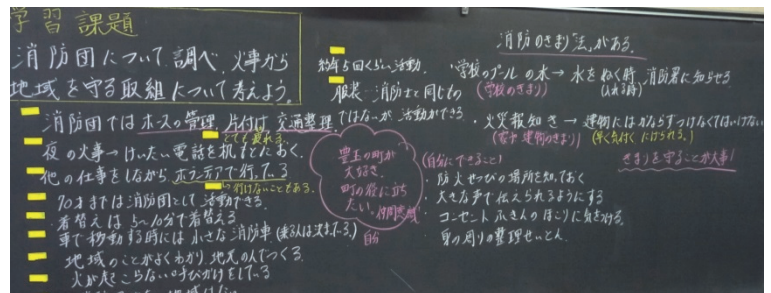 学習課題
消防団について調べ、火事から
地域を守る取組について考えよう。
消防団ではホースの管理 片付け 交通整理
とても疲れる
夜の火事→けいたい電話を机までおく。
他の仕事をしながらボランテアで行っている
行けないこともある。
70才までは消防団として活動できる。
着替えは5〜10分で着替える
車で移動する時には小さな消防車(乗る人は決まっている)
地域のことがよくわかり地元の人でつくる。
火が起こらない呼びかけをしている
約年5回くらい活動。
服装→消防士と同じもの
ではないが活動ができる。
豊玉の町が
大好き。
町の役に立ち
たい。仲間意識
自分
消防のきまり「法」がある。
学校のプールの水→水をぬく時 消防署に知らせる
(学校のきまり)
(入れる時)
火災報知き→建物にはかならずつけなくてはいけない
(家や建物のきまり) (早く気付く にげられる。)
きまりを守ることが大事!
(自分にできること)
防火せつびの場所を知っておく
大きな声で伝えられるようにする
コンセントふきんのほこりに気をつける。
身の周りの整理せいとん